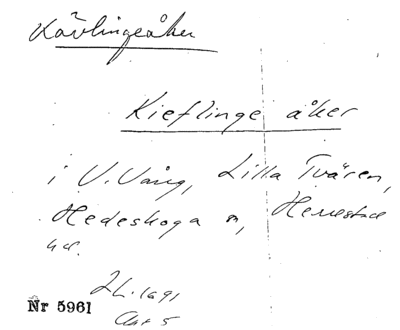 Kävlingeåker
Kieflinge åker
i V. Vång, Lilla Tvären,
Hedeskoga sn, Herrestad
hd.
LL. 1691
Akt 5
Nr 5961